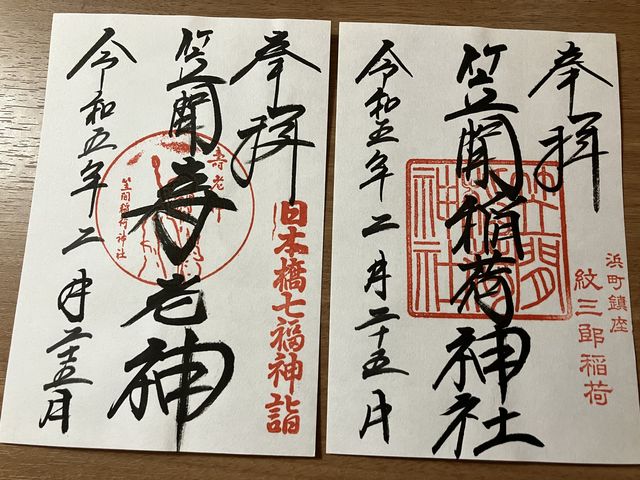 奉拝
浜町鎮座
紋三郎稲荷
笠間稲荷神社
笠間
神社
令和五年二月二十五日
奉拝
日本橋七福神詣
笠間寿老神
壽老
笠間稲荷神社
令和五年二月二十五日